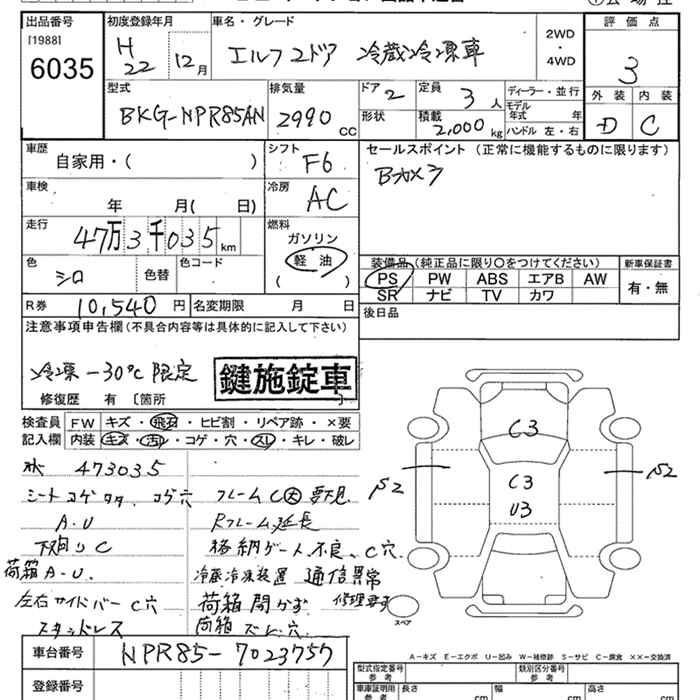 出品番号
[1988]
6035
初度登録年月
H 22 12月
車名・グレード
エルフ 2ドア 冷蔵冷凍車
2WD
・
4WD
評価点
3
外装 内装
D C
型式
BKG-NPR85AN
排気量
2990 CC
ドア 2
形状
定員 3人
積載 2,000 kg
ディーラー・並行
モデル年式 年
ハンドル 左・右
車歴
自家用・( )
シフト
F6
セールスポイント(正常に機能するものに限ります)
Bカメラ
車検
年 月( 日)
冷房
AC
走行
47万3千035km
燃料
ガソリン
軽油
( )
色
シロ
色替
色コード
装備品(純正品に限り〇をつけてください)
PS PW ABS エアB AW
SR ナビ TV カワ
新車保証書
有・無
R券 10,540円
名変期限 月 日
後日品
注意事項申告欄(不具合内容等は具体的に記入して下さい)
冷凍 -30℃ 限定
鍵施錠車
修復歴 有 〔箇所 〕
検査員記入欄
FW キズ・飛石・ヒビ割・リペア跡・×要
内装 キズ・汚レ・コゲ・穴・スレ・キレ・破レ
473035
シートコゲ
A・U
下廻りC
荷箱A-U.
左右サイドバーC穴
スタッドレス
フレームC大 要下見
Rフレーム延長
格納ゲート不良、C穴
冷蔵冷凍装置 通信異常
荷箱開かず 修理要す
荷箱 ズレ・穴
C3
C3
U3
β2
β2
スペア
車台番号 NPR85-7023757
登録番号
A-キズ E-エクボ U-凹み W-補修跡 S-サビ C-腐食 ××-交換済
型式指定番号 参考
類別区分番号 参考
車庫証明用 参考
長さ cm
幅 cm
高さ cm